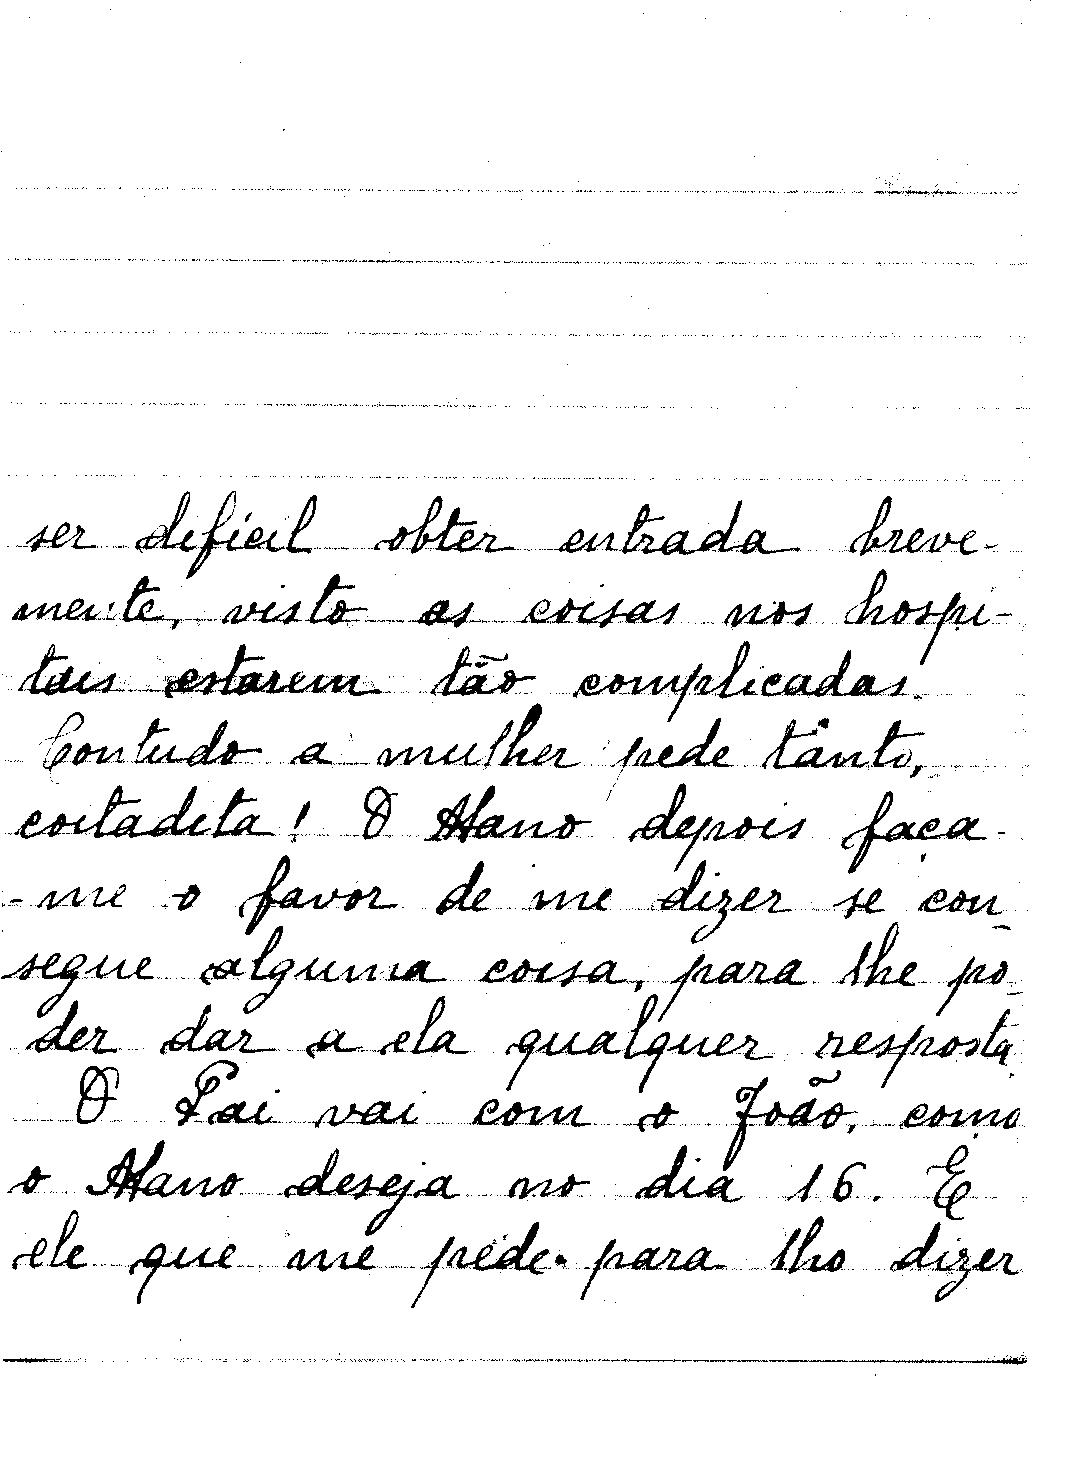 ser defícil obter entrada breve-
mente, visto as coisas nos hospi-
tais estarem tão complicadas.
Contudo a mulher pede tanto,
coitadita! O Mano depois faça-
-me o favor de me dizer se con-
segue alguma coisa, para lhe po-
der dar a ela qualquer resposta.
O Pai vai com o João, como
o Mano deseja no dia 16. E
ele que me pede para lho dizer